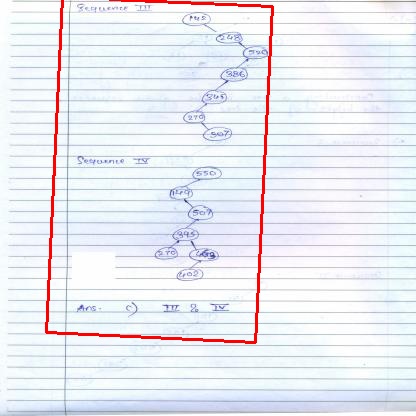 Sequence III
142
248
520
386
345
270
507
Sequence IV
550
149
507
395
270
402
Ans. c) III & IV